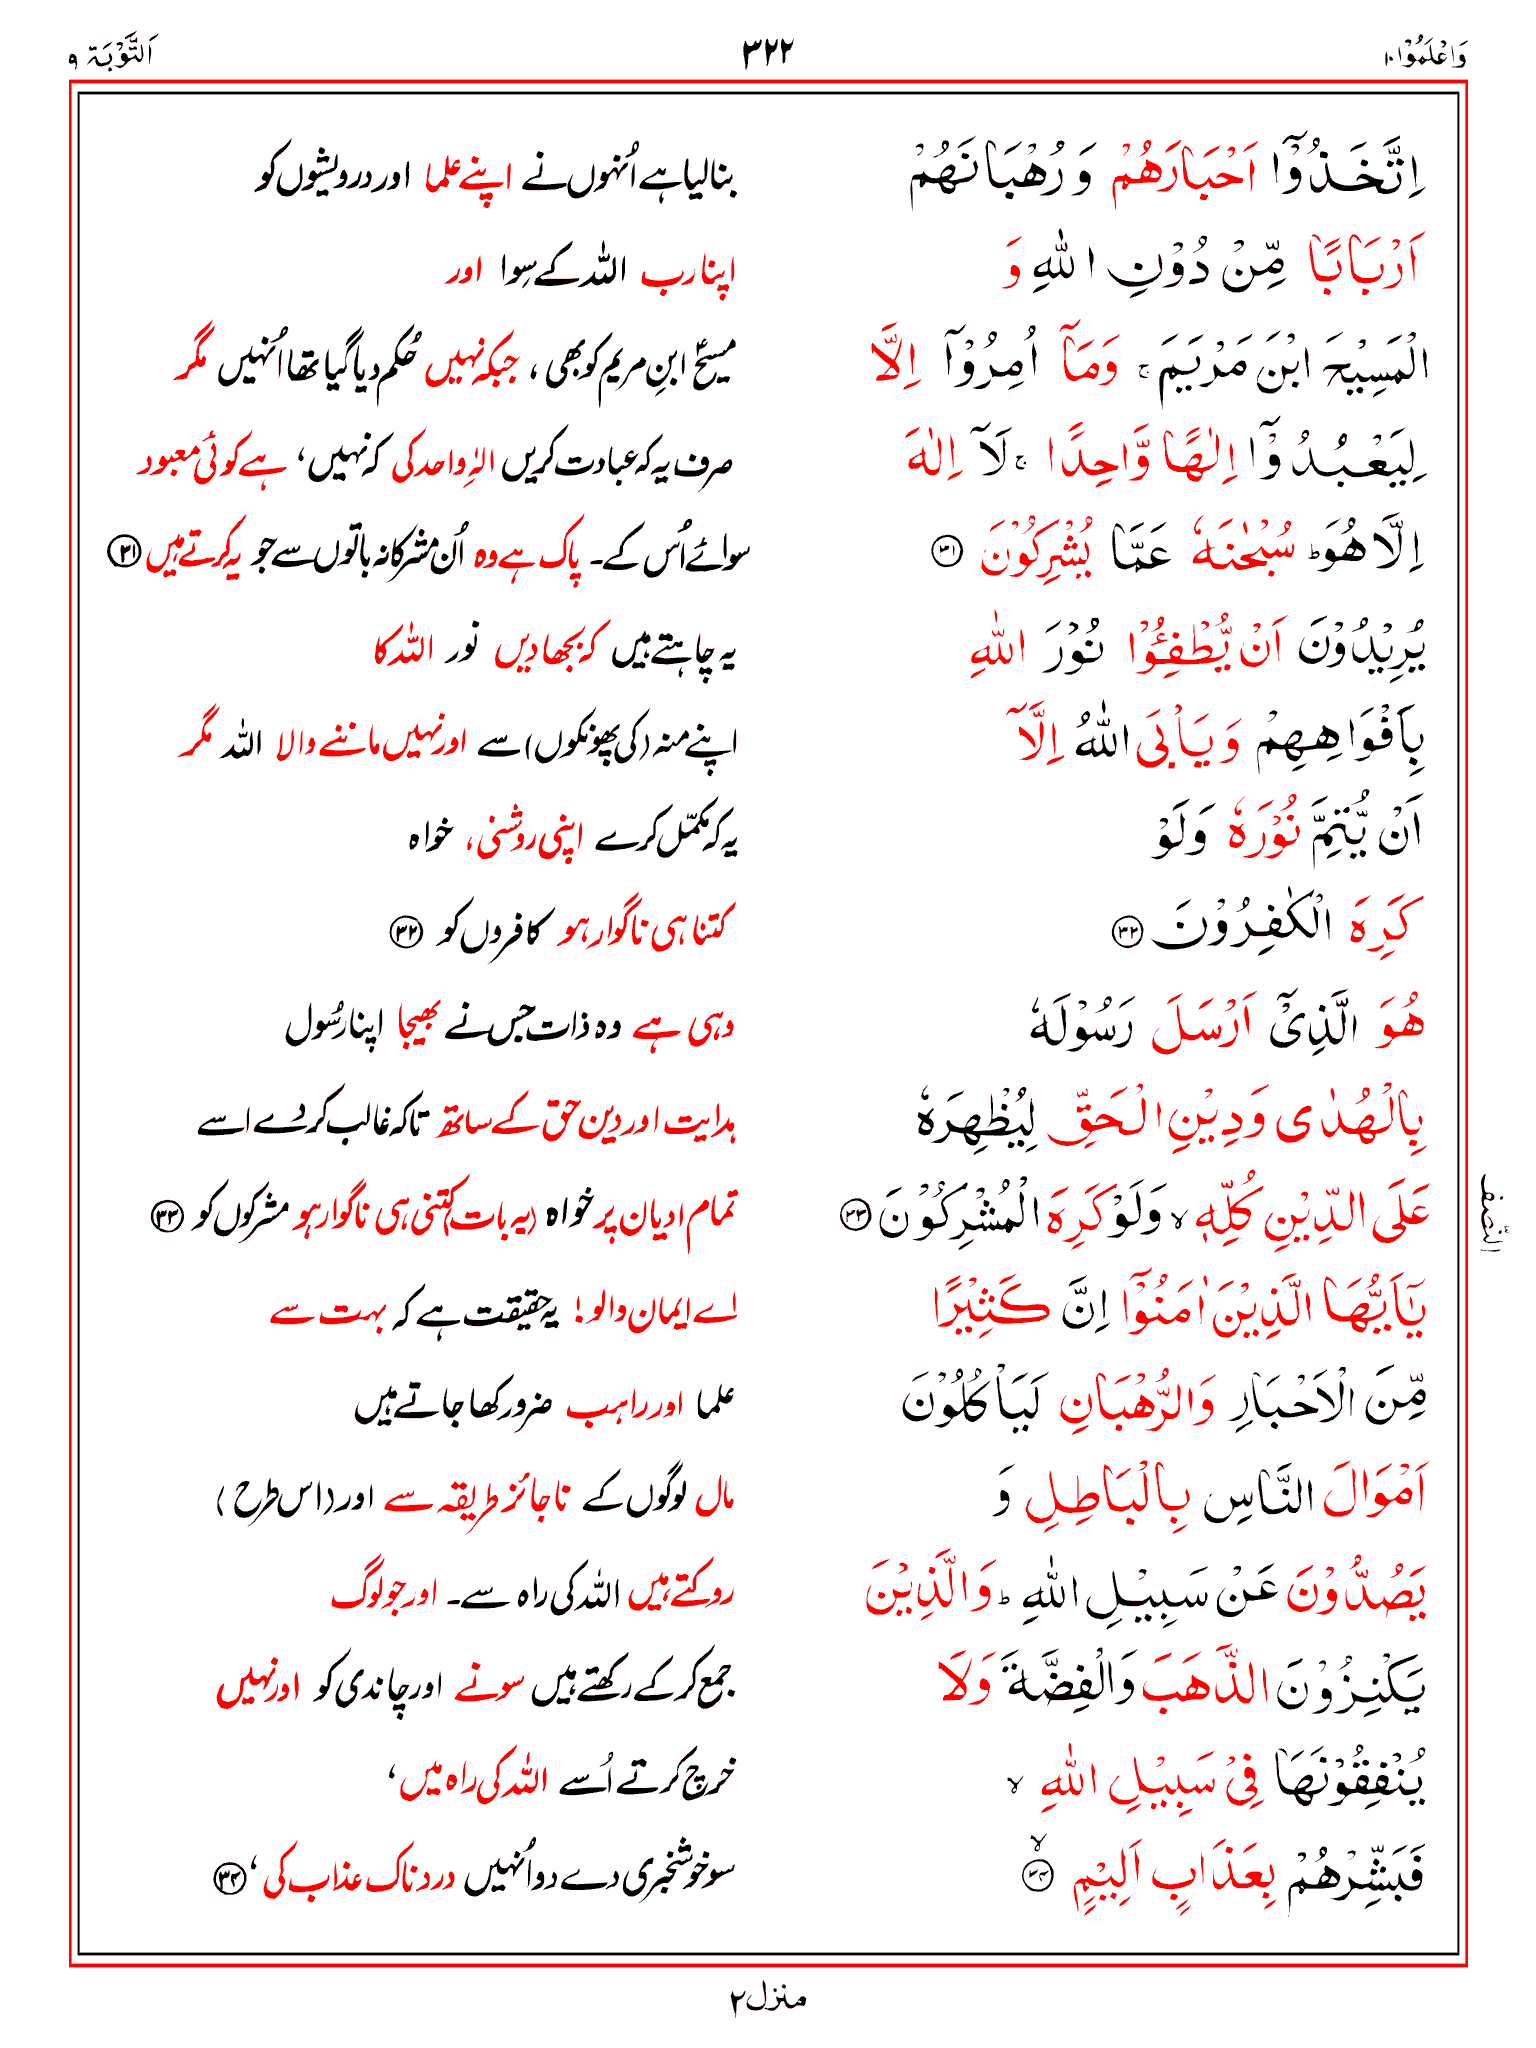 وَاعْلَمُوْا ۱۰ ۳۲۲ اَلتَّوْبَة ۹
اِتَّخَذُوْۤا اَحْبَارَهُمْ وَ رُهْبَانَهُمْ بنالیا ہے اُنہوں نے اپنے علما اور درویشوں کو
اَرْبَابًا مِّنْ دُوْنِ اللّٰهِ وَ اپنا رب اللہ کے سِوا اور
الْمَسِیْحَ ابْنَ مَرْیَمَ ۚ وَمَاۤ اُمِرُوْۤا اِلَّا مسیحؑ ابنِ مریم کو بھی، جبکہ نہیں حُکم دیا گیا تھا اُنہیں مگر
لِیَعْبُدُوْۤا اِلٰهًا وَّاحِدًا ۚ لَاۤ اِلٰهَ صرف یہ کہ عبادت کریں الٰہِ واحد کی کہ نہیں، ہے کوئی معبود
اِلَّا هُوَ ؕ سُبْحٰنَهٗ عَمَّا یُشْرِكُوْنَ ۳۱ سوائے اُس کے۔ پاک ہے وہ اُن مشرکانہ باتوں سے جو یہ کرتے ہیں ۳۱
یُرِیْدُوْنَ اَنْ یُّطْفِـُٔوْا نُوْرَ اللّٰهِ یہ چاہتے ہیں کہ بجھا دیں نور اللہ کا
بِاَفْوَاهِهِمْ وَیَاْبَی اللّٰهُ اِلَّاۤ اپنے منہ (کی پھونکوں) سے اور نہیں ماننے والا اللہ مگر
اَنْ یُّتِمَّ نُوْرَهٗ وَلَوْ یہ کہ مکمّل کرے اپنی روشنی، خواہ
كَرِهَ الْكٰفِرُوْنَ ۳۲ کتنا ہی ناگوار ہو کافروں کو ۳۲
هُوَ الَّذِیْۤ اَرْسَلَ رَسُوْلَهٗ وہی ہے وہ ذات جس نے بھیجا اپنا رسُول
بِالْهُدٰی وَدِیْنِ الْحَقِّ لِیُظْهِرَهٗ ہدایت اور دین حق کے ساتھ تاکہ غالب کر دے اسے
عَلَی الدِّیْنِ كُلِّهٖ ۙ وَلَوْ كَرِهَ الْمُشْرِكُوْنَ ۳۳ تمام ادیان پر خواہ (یہ بات) کتنی ہی ناگوار ہو مشرکوں کو ۳۳
النّصف
یٰۤاَیُّهَا الَّذِیْنَ اٰمَنُوْۤا اِنَّ كَثِیْرًا اے ایمان والو! یہ حقیقت ہے کہ بہت سے
مِّنَ الْاَحْبَارِ وَالرُّهْبَانِ لَیَاْكُلُوْنَ علما اور راہب ضرور کھا جاتے ہیں
اَمْوَالَ النَّاسِ بِالْبَاطِلِ وَ مال لوگوں کے ناجائز طریقہ سے اور (اس طرح)
یَصُدُّوْنَ عَنْ سَبِیْلِ اللّٰهِ ؕ وَالَّذِیْنَ روکتے ہیں اللہ کی راہ سے۔ اور جو لوگ
یَكْنِزُوْنَ الذَّهَبَ وَالْفِضَّةَ وَلَا جمع کر کے رکھتے ہیں سونے اور چاندی کو اور نہیں
یُنْفِقُوْنَهَا فِیْ سَبِیْلِ اللّٰهِ ۙ خرچ کرتے اُسے اللہ کی راہ میں،
فَبَشِّرْهُمْ بِعَذَابٍ اَلِیْمٍ ۙ ۳۴ سو خوشخبری دے دو اُنہیں دردناک عذاب کی، ۳۴
منزل ۲